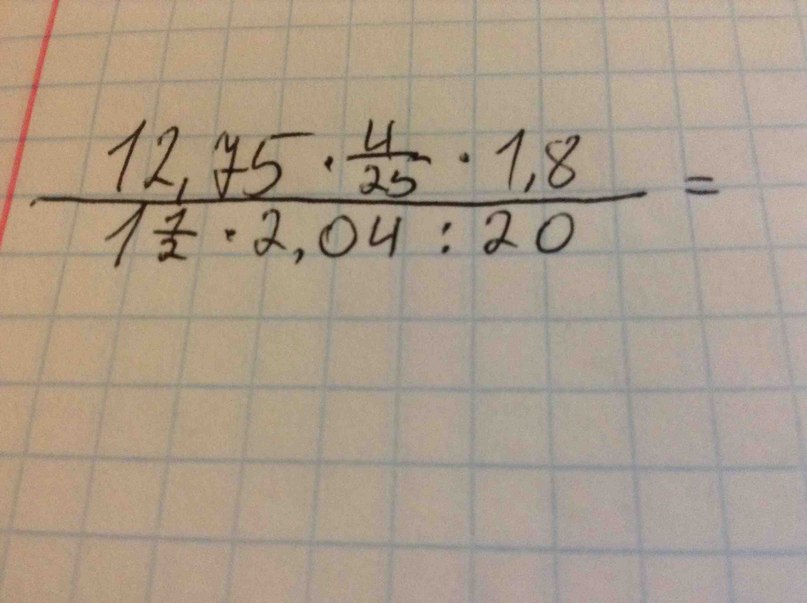 12,75 · 4/25 · 1,8 =
1 1/2 · 2,04 : 20